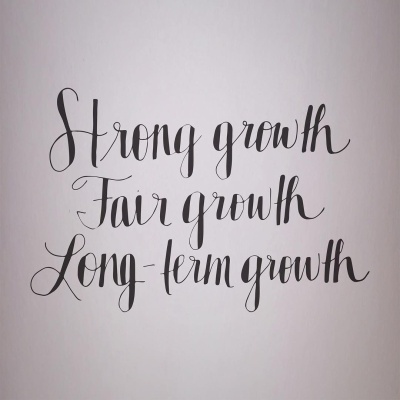 Strong growth
Fair growth
Long-term growth